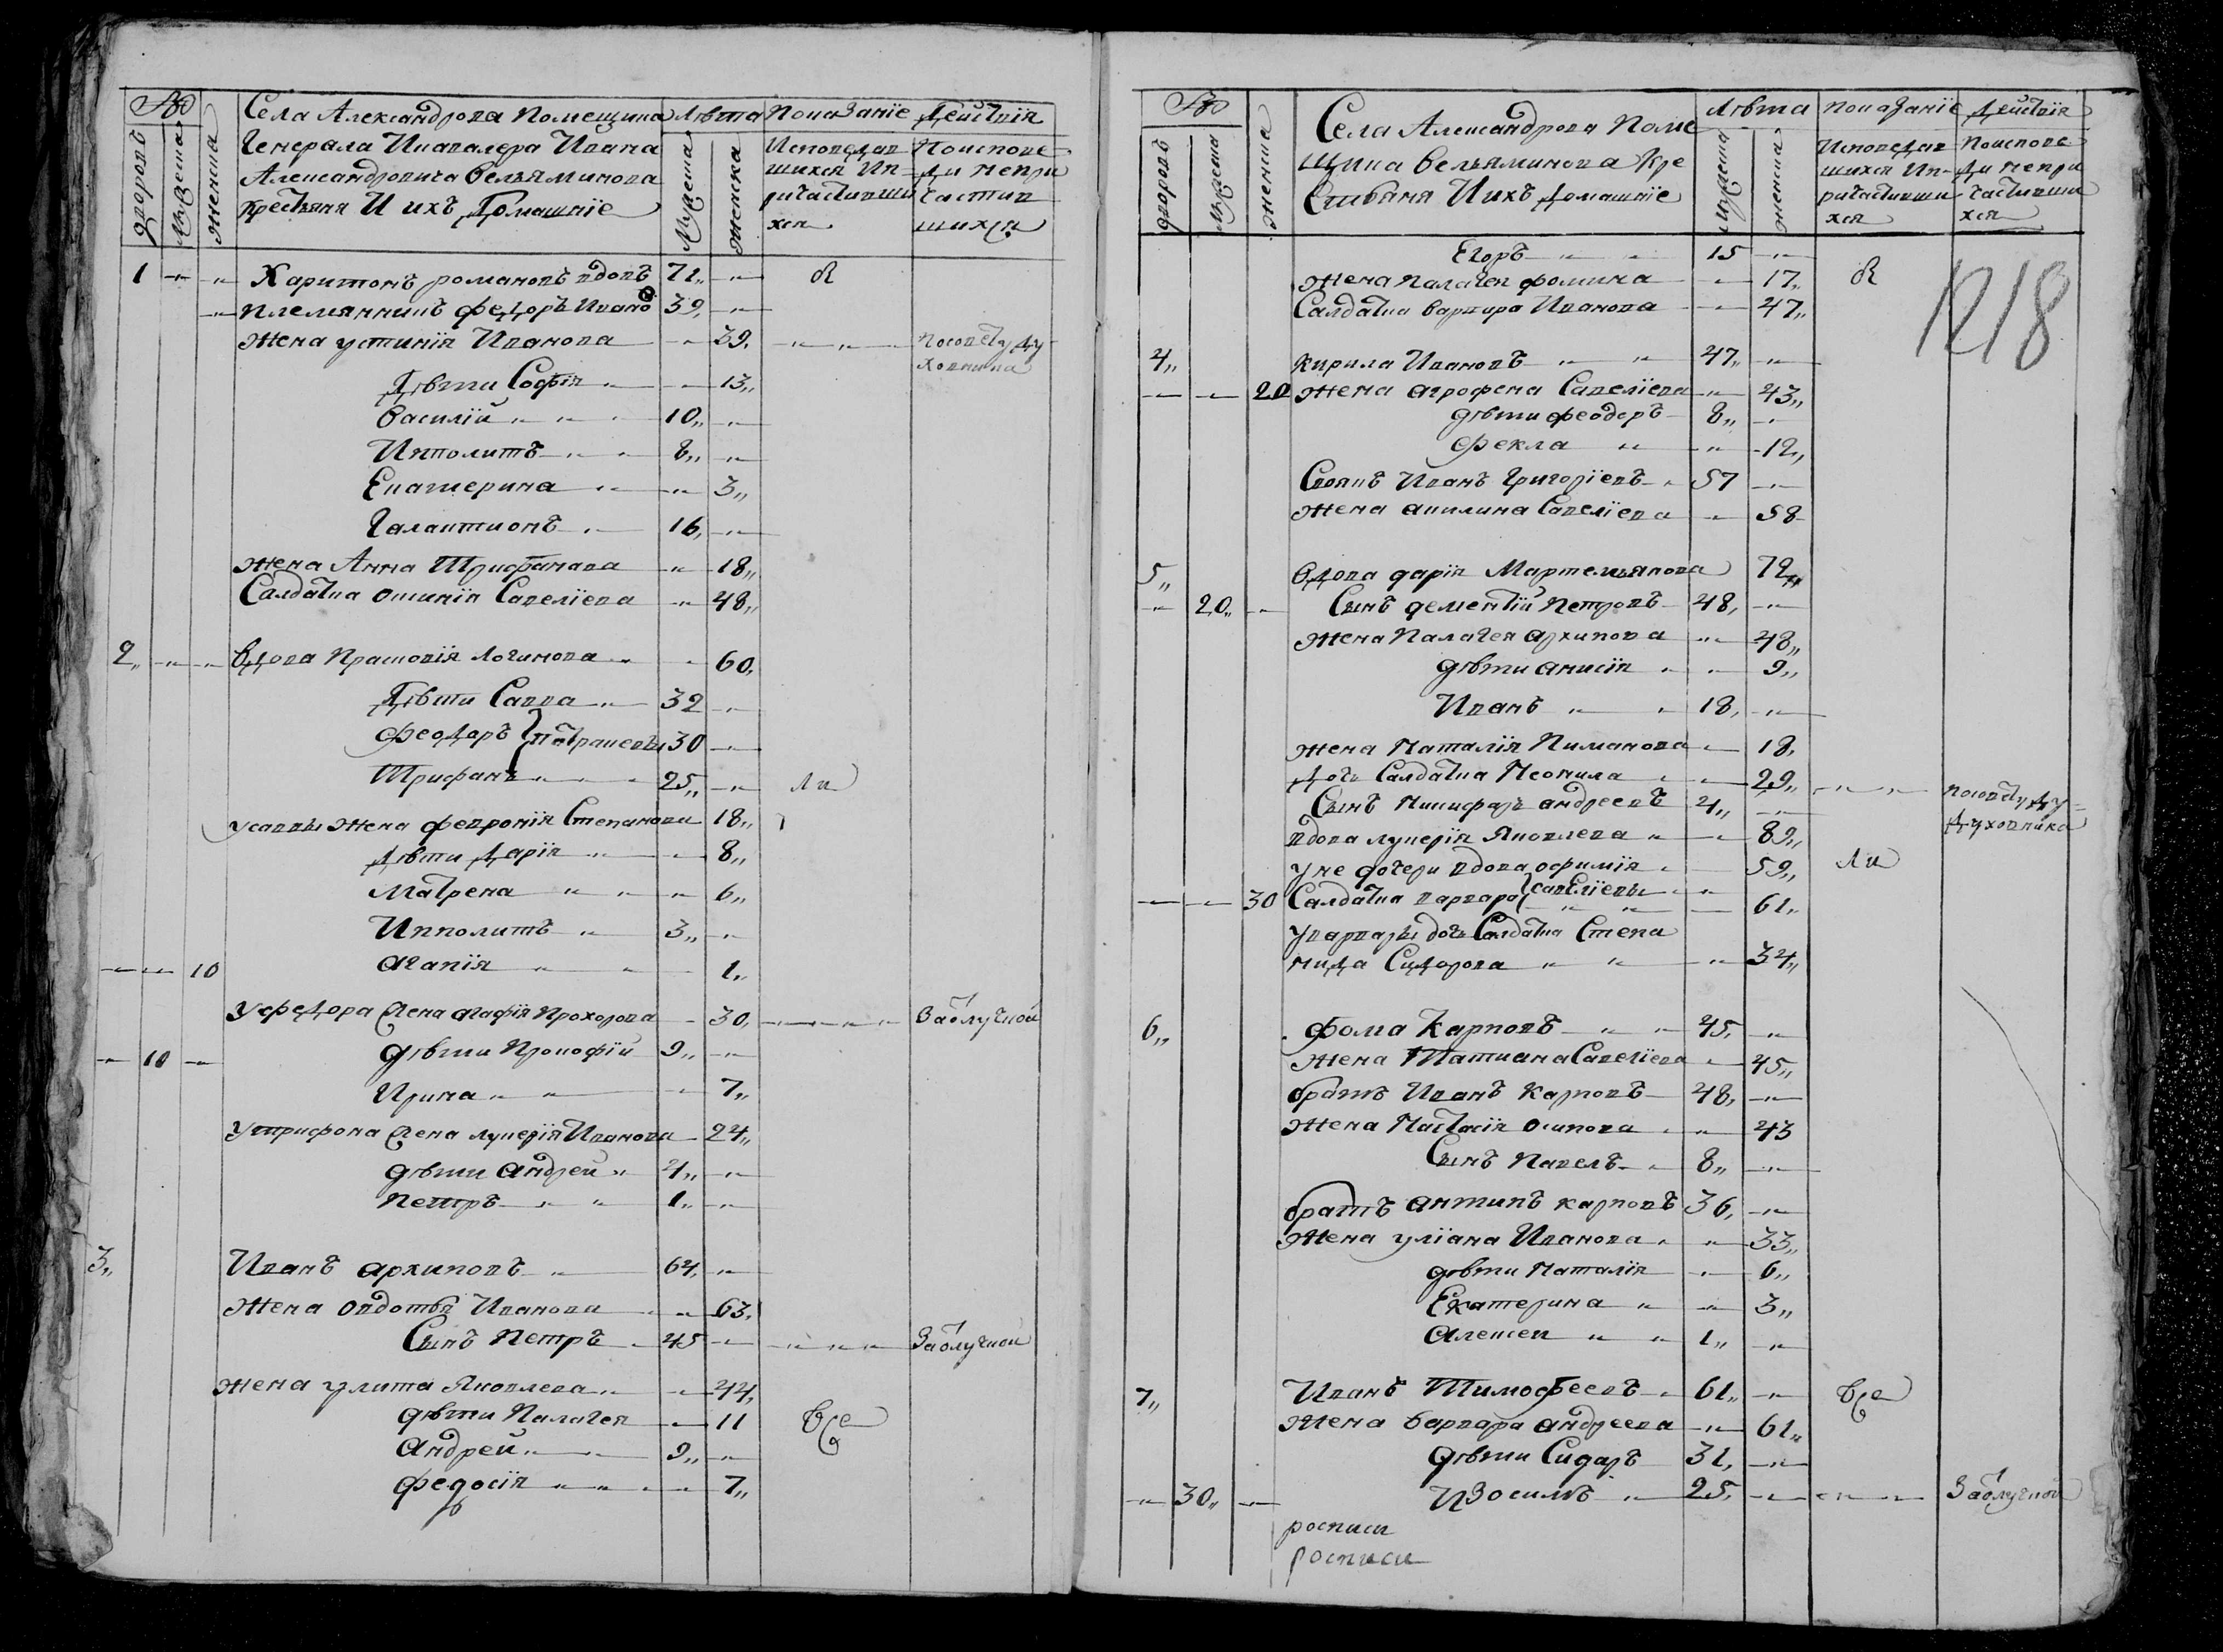 №
дворовъ
Мужеска
женска
Села Александрова Помещика
Генерала Икавалера Ивана
Александровича Вельяминова
крестьяня И ихъ Домашнiе
Лѣта
Мужеска
женска
Показанiе
Исповедав
шихся Ип-
ричастивши
хся
Действiя
Поиспове-
ди непри
частив
шихся
1 Харитонъ романовъ вдовъ 71,
племянникъ федоръ Ивано 39,
Жена устинiя Иванова 39. посовету ду
ховника
Дѣти Софiя 13,,
Василiй 10,,
Ипполитъ 8,,
Екатерина 3,,
Галактионъ 16,
жена Анна Трифанова 18,,
Салдатка Ѳтинiя Савелiева 48,,
2,, Вдова Прасковiя Логинова 60,
Дѣти Савва 32
Феодоръ патракеевы 30
Трифанъ 25,,
Усаввы Жена февронiя Степанова 18,,
дѣти Дарiя 8,,
Матрена 6,,
Ипполитъ 3,,
10 агапiя 1,,
Уфедора Жена агафiя Прохорова 30, Заотлучкой
10 дѣти Прокофiй 9,,
Ирина 7,,
Утрифона Жена лукерiя Иванова 24,,
дѣти андрей 4,,
Петръ 1,,
3,, Иванъ архиповъ 64,
Жена овдотья Иванова 63,
Сынъ Петръ 45 Заотлучкой
Жена улита Яковлева 44,
дѣти Палагея 11 Все
андрей 9,,
федосiя 7,,
№
дворовъ
Мужеска
женска
Села Александрова Поме
щика Вельяминова Кре
стьяня Ихъ домашнiе
Лѣта
мужеска
женска
показанiе
Исповедав
шихся Ип-
ричастивши
хся
действiя
Поиспове
ди непри
частивши
хся
1218
Егоръ 15
жена палагея фомина 17,
Салдатка варвара Иванова 47,,
4,, Кирила Ивановъ 47,,
20 Жена агрофена Савелiева 43,,
дѣти феодоръ 8,,
фекла 12,,
Своякъ Иванъ Григорiевъ 57
жена акилина Савелiева 58
5,, Вдова дарiя Мартемьянова 72,,
20,, Сынъ дементiй Петровъ 48,
жена Палагея архипова 48,,
дѣти анисiя 9,,
Иванъ 18,
жена Наталiя Пиманова 18,
дочь Салдатка Неонила 29,, посовету ду=
Сынъ Никифаръ андреевъ 4,, духовника
вдова лукерiя Яковлева 82,,
Унее дочери вдова офимiя 59,,
30 Салдатка варвара Савелiевы 61,
Уварвары дочь Салдатка Степа
нида Сидорова 34,,
6,, фома Карповъ 45,
Жена Татиана Савелiева 45,,
братъ Иванъ Карповъ 48,
Жена Настасiя осипова 43
Сынъ Павелъ 8,,
братъ антипъ карповъ 36,
Жена улiана Иванова 33,,
дѣти Наталiя 6,,
Екатерина 3,,
алексеи 1,,
7,, Иванъ Тимофеевъ 61,, Все
Жена Варвара андреева 61,,
дѣти Сидаръ 31,
30,, Изосимъ 25, Заотлучкой
росписи
росписи